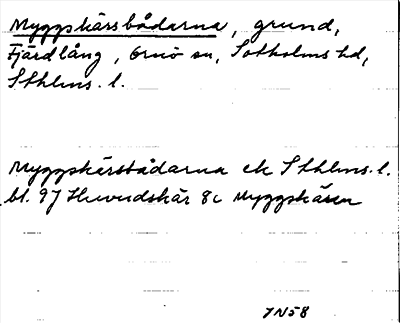 Myggskärsbådarna, grund,
Fjärdlång, Ornö sn, Sotholms hd,
Sthlms. l.
Myggskärsbådarna ek Sthlms. l.
bl. 97 Huvudskär 8c Myggskären
7N58